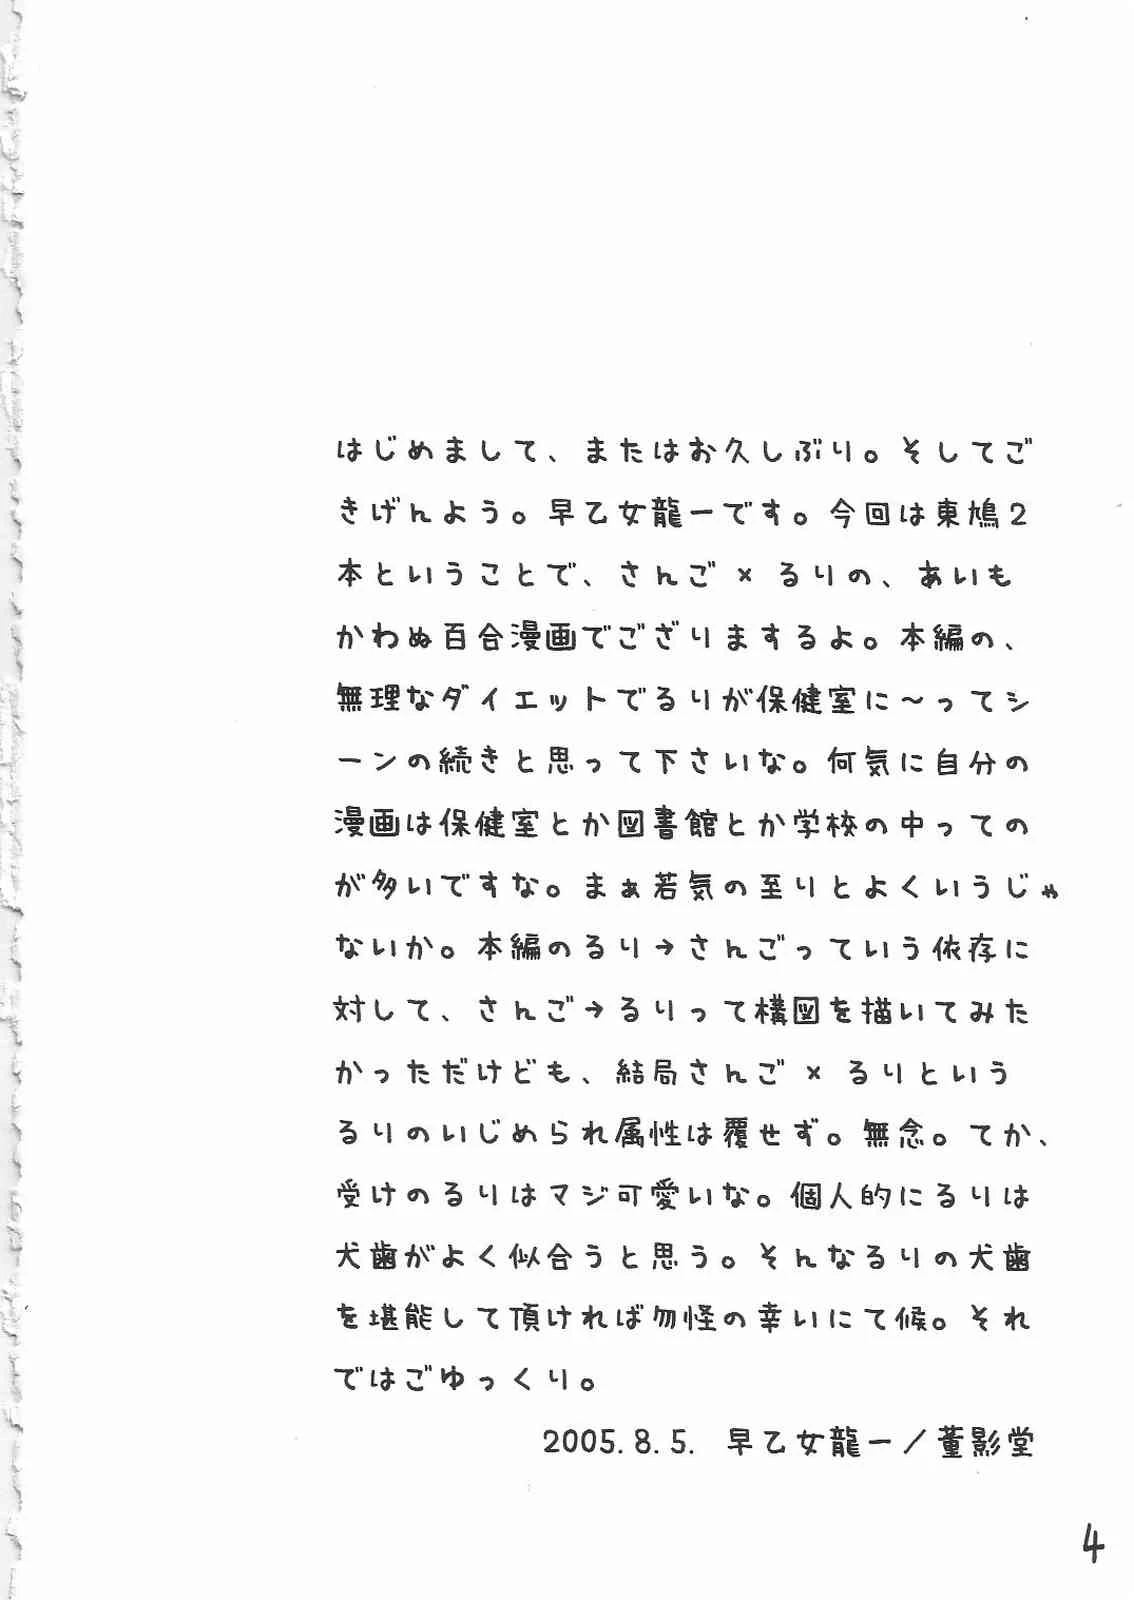 はじめまして、またはお久しぶり。そしてご
きげんよう。早乙女龍一です。今回は東鳩2
本ということで、さんご×るりの、あいも
かわぬ百合漫画でござりまするよ。本編の、
無理なダイエットでるりが保健室に～ってシ
ーンの続きと思って下さいな。何気に自分の
漫画は保健室とか図書館とか学校の中っての
が多いですな。まぁ若気の至りとよくいうじゃ
ないか。本編のるり→さんごっていう依存に
対して、さんご→るりって構図を描いてみた
かっただけども、結局さんご×るりという
るりのいじめられ属性は覆せず。無念。てか、
受けのるりはマジ可愛いな。個人的にるりは
犬歯がよく似合うと思う。そんなるりの犬歯
を堪能して頂ければ勿怪の幸いにて候。それ
ではごゆっくり。
2005.8.5. 早乙女龍一／菫影堂
4